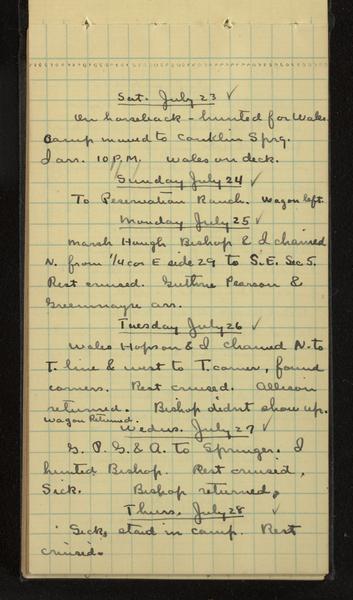 Sat. July 23 ✓
On horseback - hunted for Wales.
Camp moved to Conklin Sprg.
I arr. 10 P.M. Wales on deck.
Sunday July 24 ✓
To Reservation Ranch. Wagon left.
Monday July 25 ✓
Marsh Hough Bishop & I chained
N. from 1/4 cor E side 29 to S.E. Sec. 5.
Rest cruised. Guthrie Pearson &
Greenmayre arr.
Tuesday July 26 ✓
Wales Hopson & I chained N. to
T. line & west to T. corner, found
corners. Rest cruised. Allison
returned. Bishop didnt show up.
Wagon Returned.
Wednes. July 27 ✓
G. P. G. & A. to Springer. I
hunted Bishop. Rest cruised,
Sick. Bishop returned.
Thurs. July 28 ✓
Sick, staid in camp. Rest
cruised.